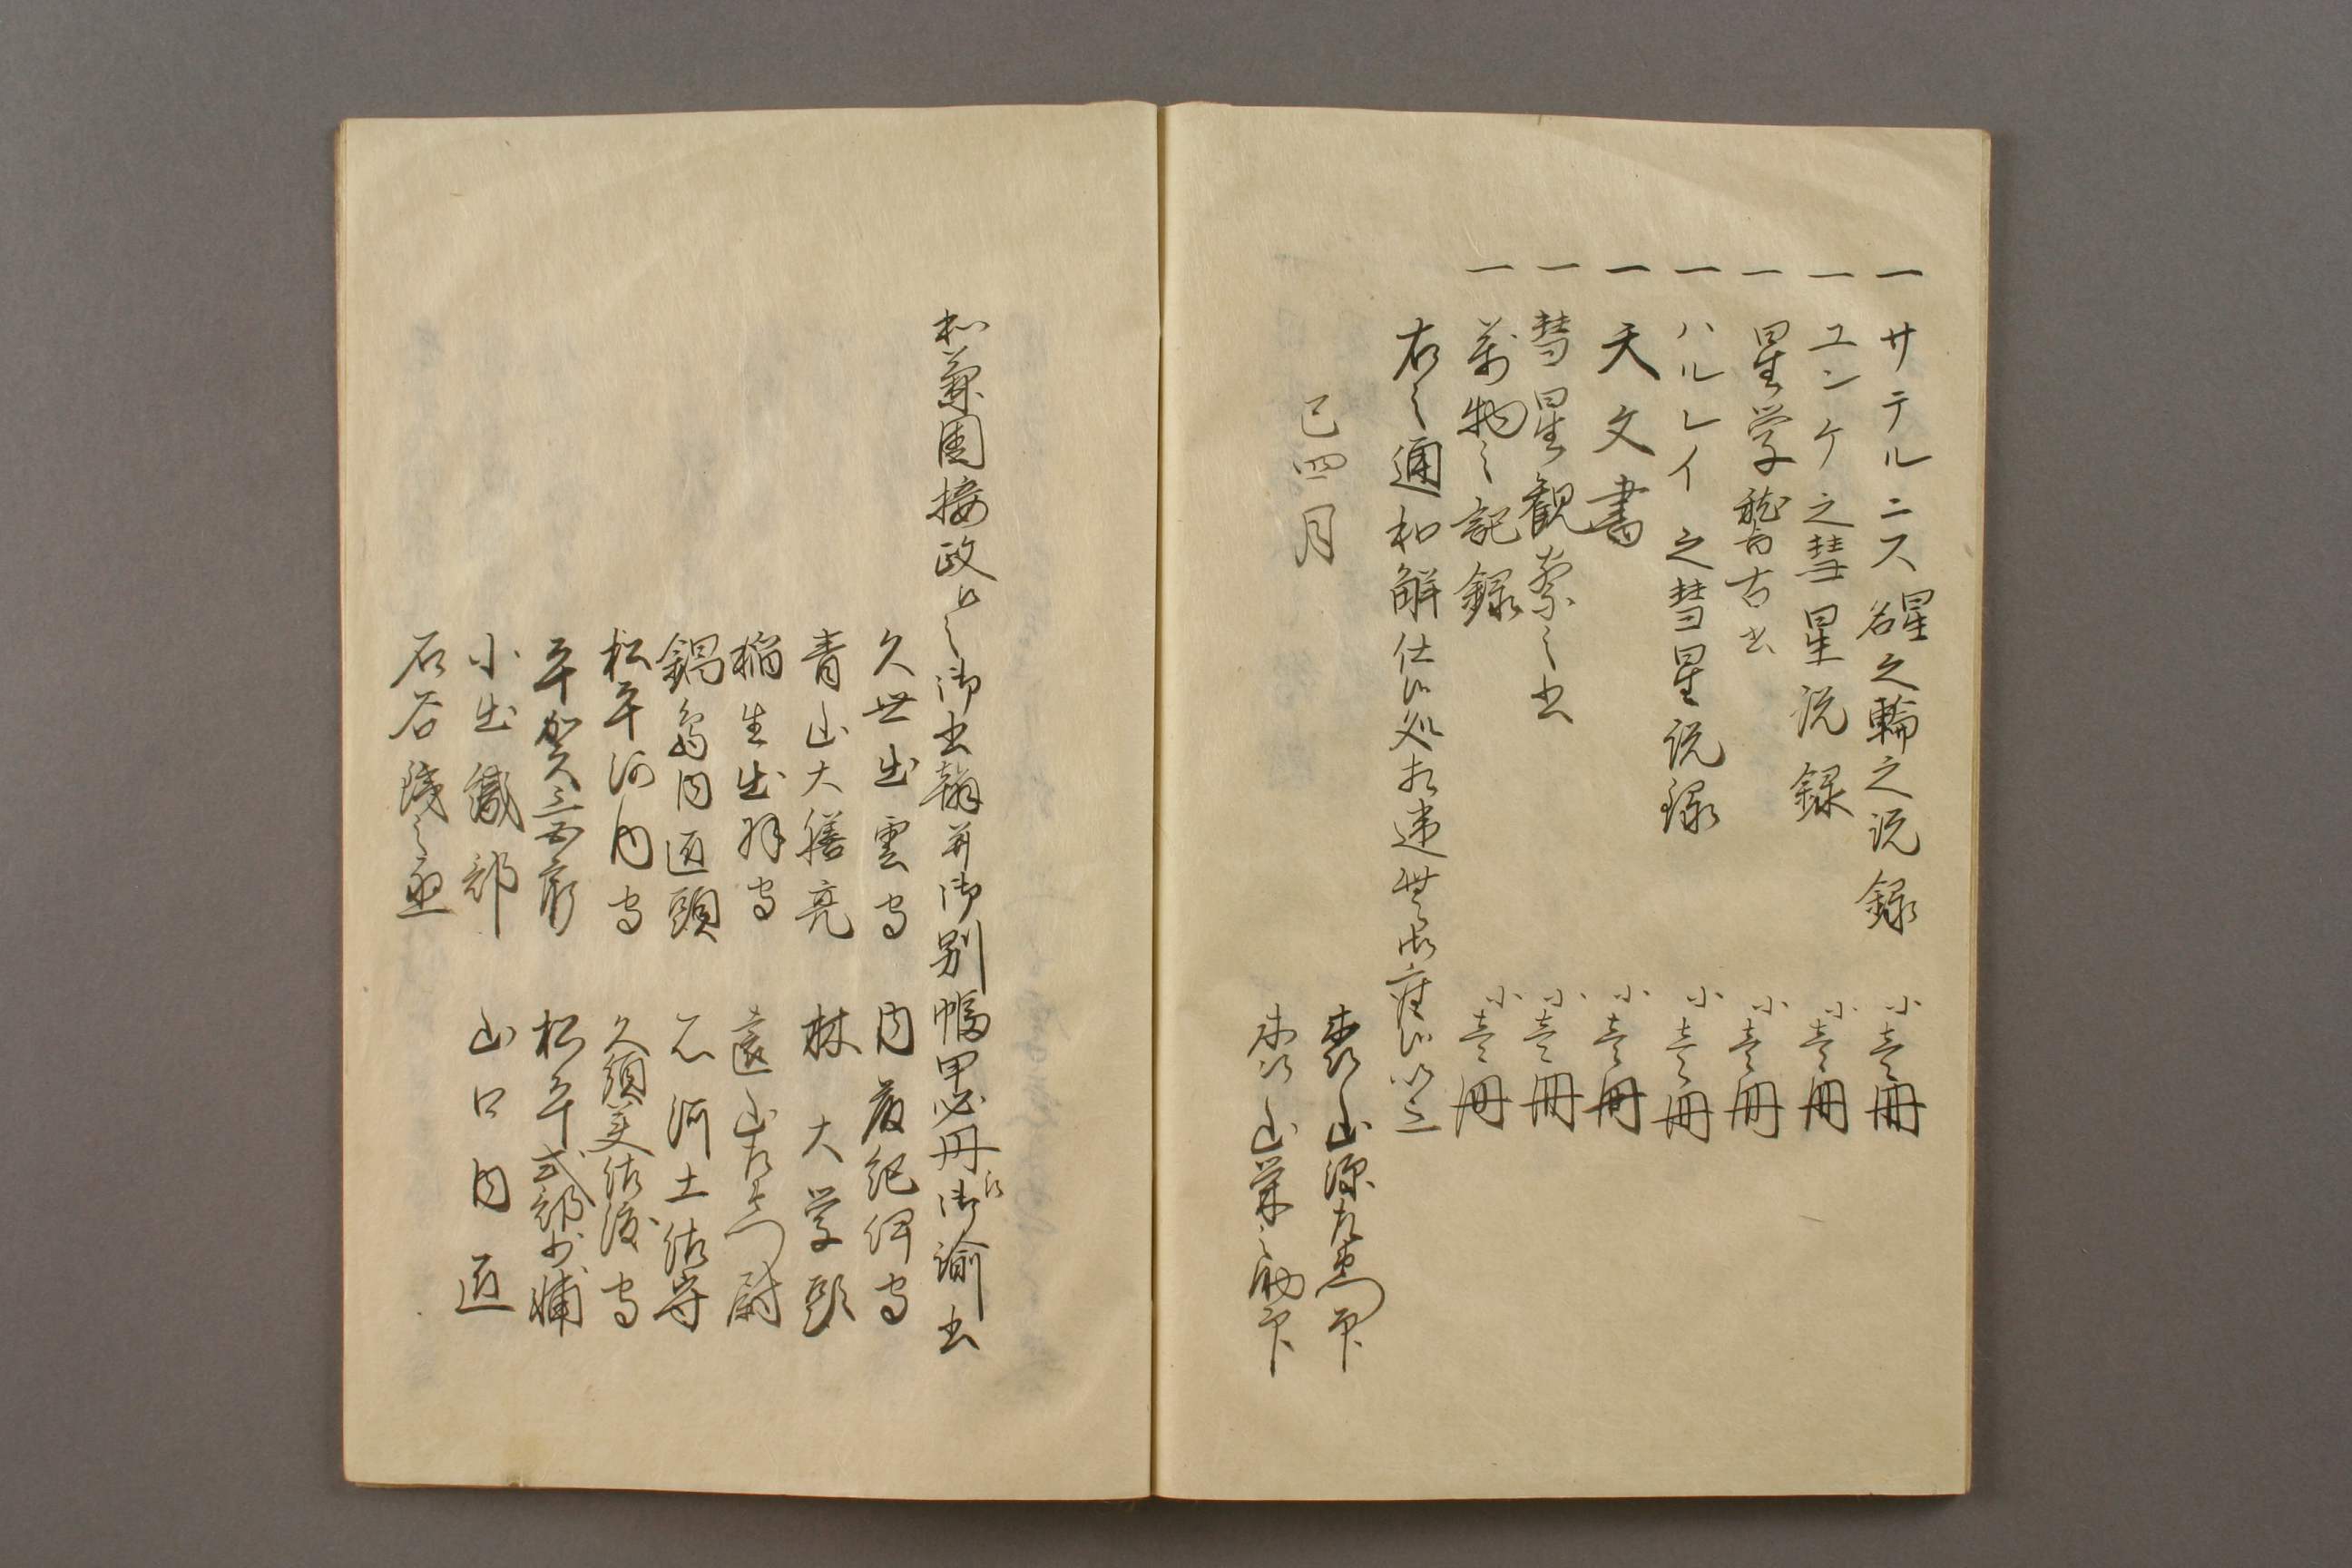 一サテルニス星名之輪之説録 小壱冊
一ユンケ之彗星説録 小壱冊
一星学稽古書 小壱冊
一ハルレイ之彗星説録 小壱冊
一天文書 小壱冊
一彗星観察之書 小壱冊
一万物之記録 小壱冊
右之通和解仕候処相違無御座候以上
巳四月 森山源左衛門印
森山栄之助印
和蘭国接政江之御書翰并御別幅甲必丹江御諭書
久世出雲守 内藤紀伊守
青山大膳亮 林大学頭
稲生出羽守 遠山左衛門尉
鍋島内匠頭 石河土佐守
松平河内守 久須美佐渡守
平賀三五郎 松平式部少輔
小出織部 山口内匠
石谷鐵之丞